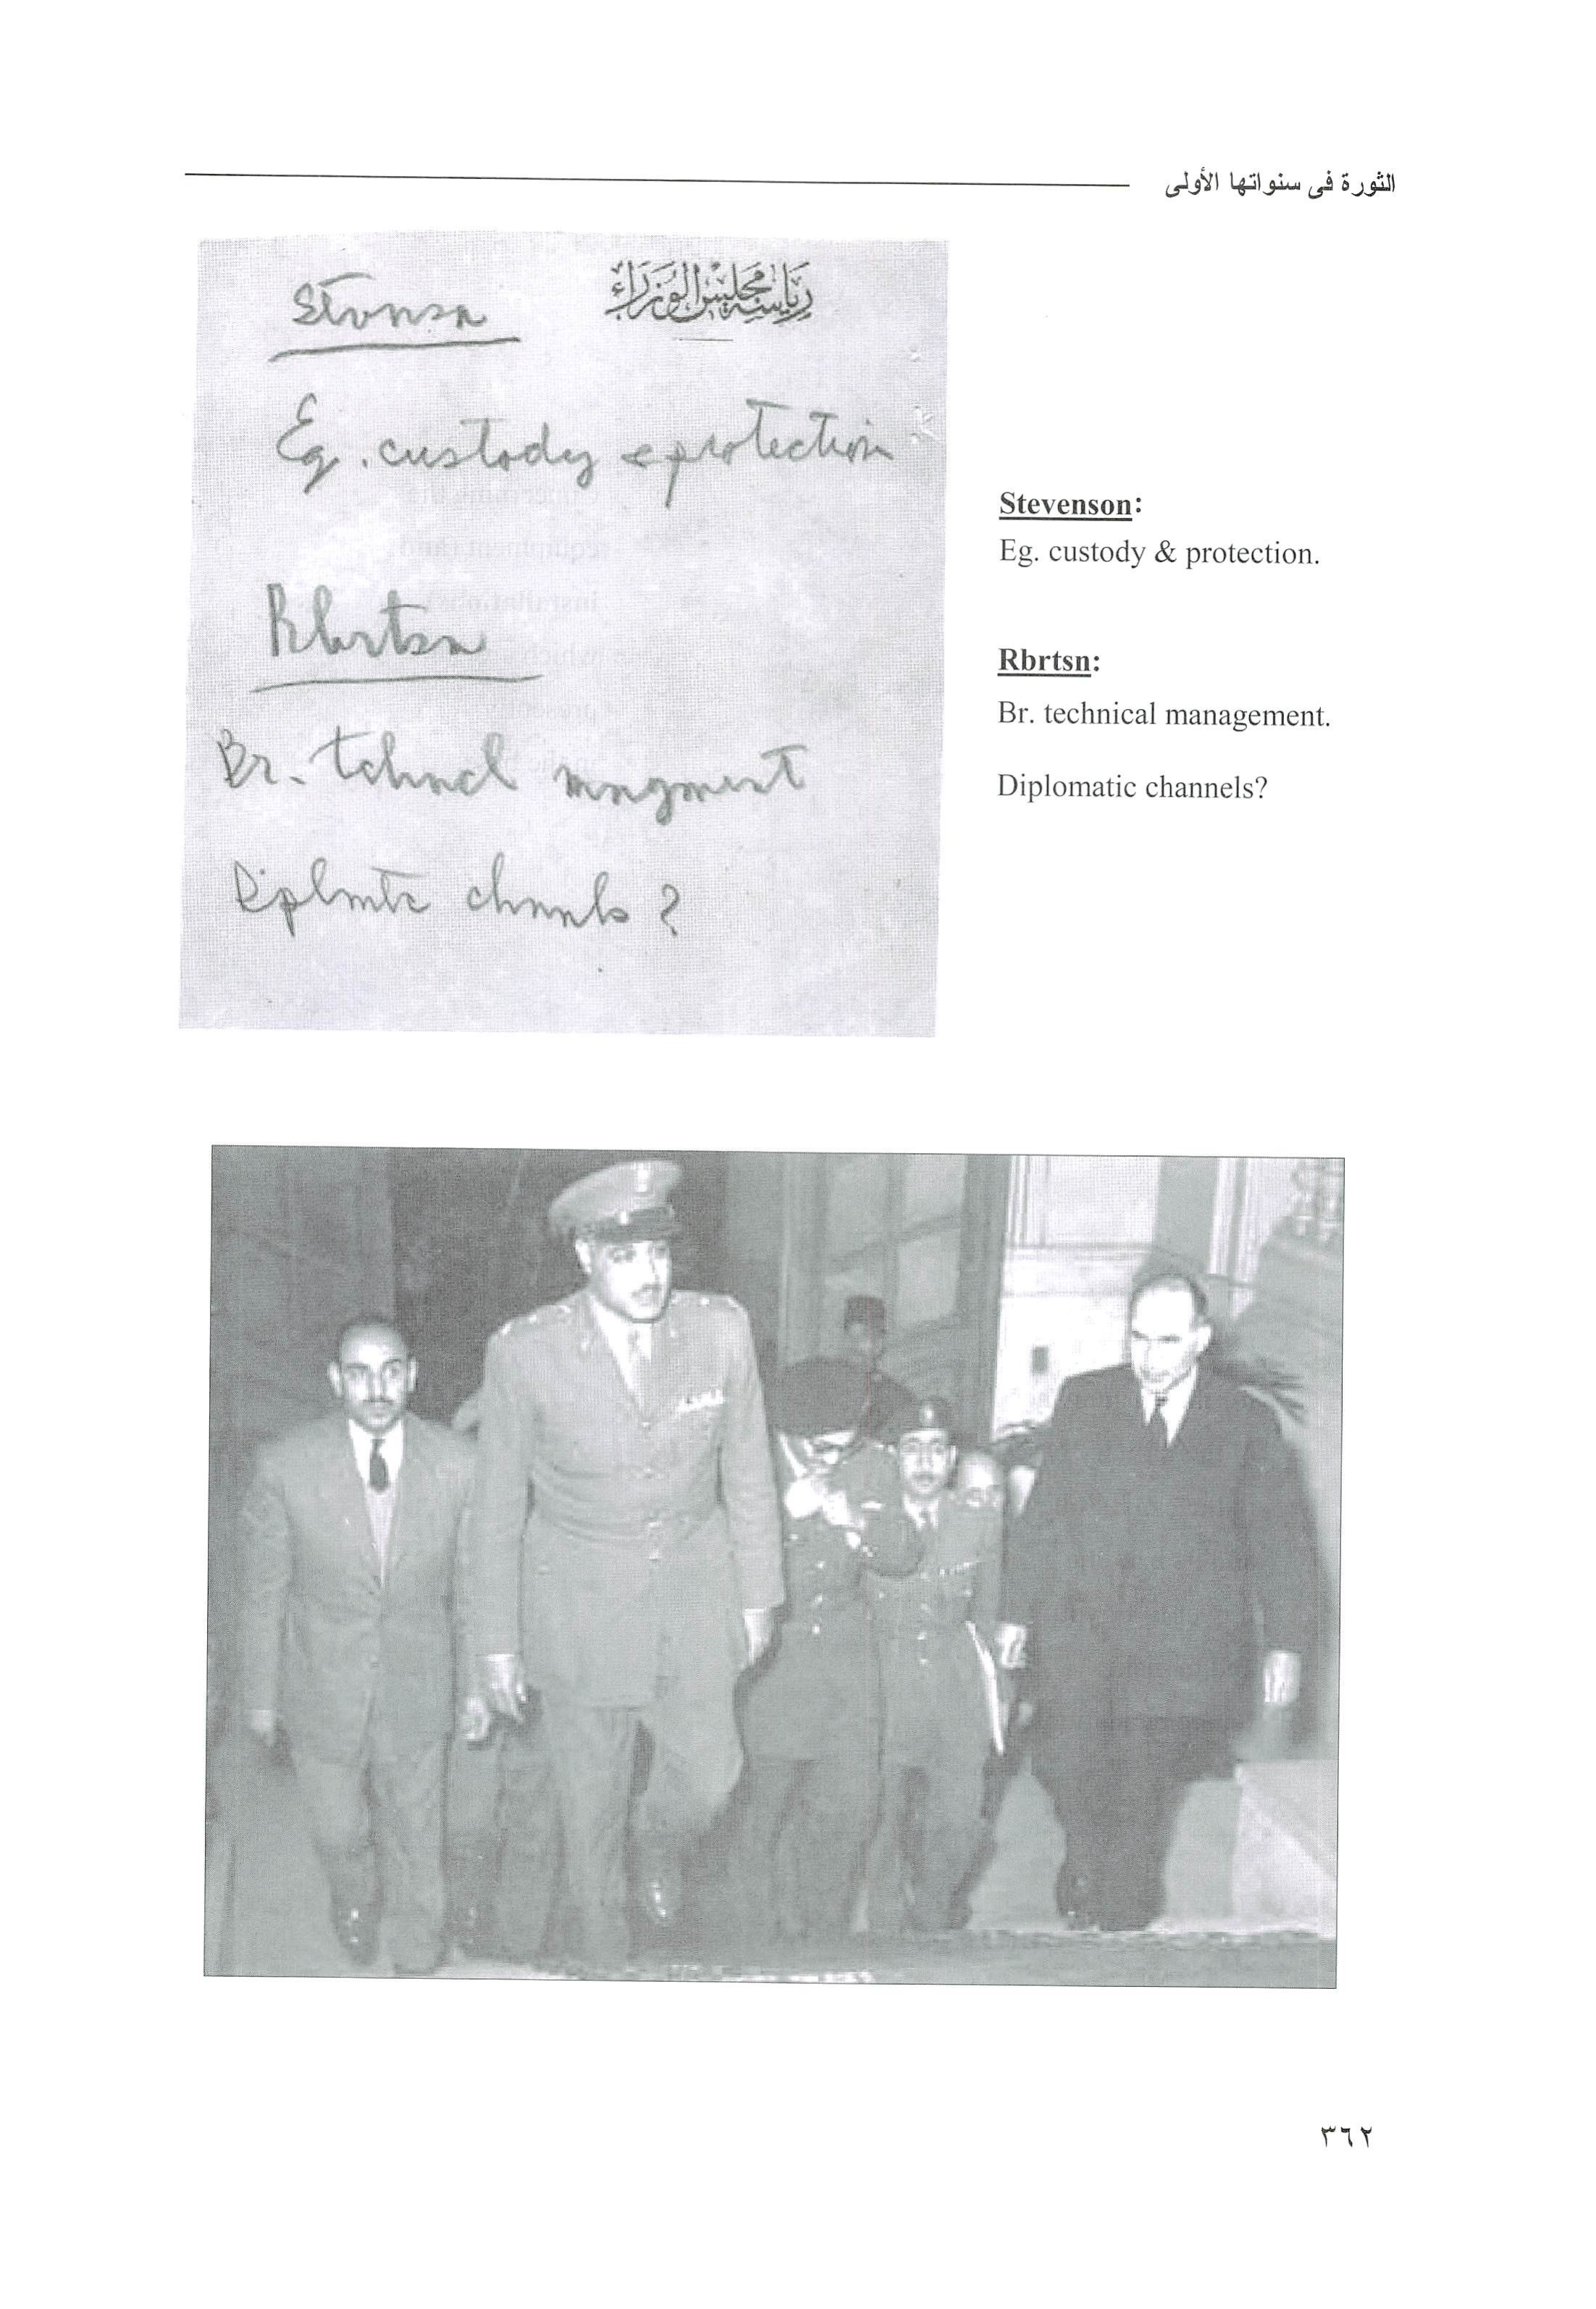 الثورة فى سنواتها الأولى
رياسة مجلس الوزراء
Stvnsn
Eg. custody & protection
Rbrtsn
Br. tchncl mngmnt
Diplmtc chnnls ?
Stevenson:
Eg. custody & protection.
Rbrtsn:
Br. technical management.
Diplomatic channels?
٣٦٢